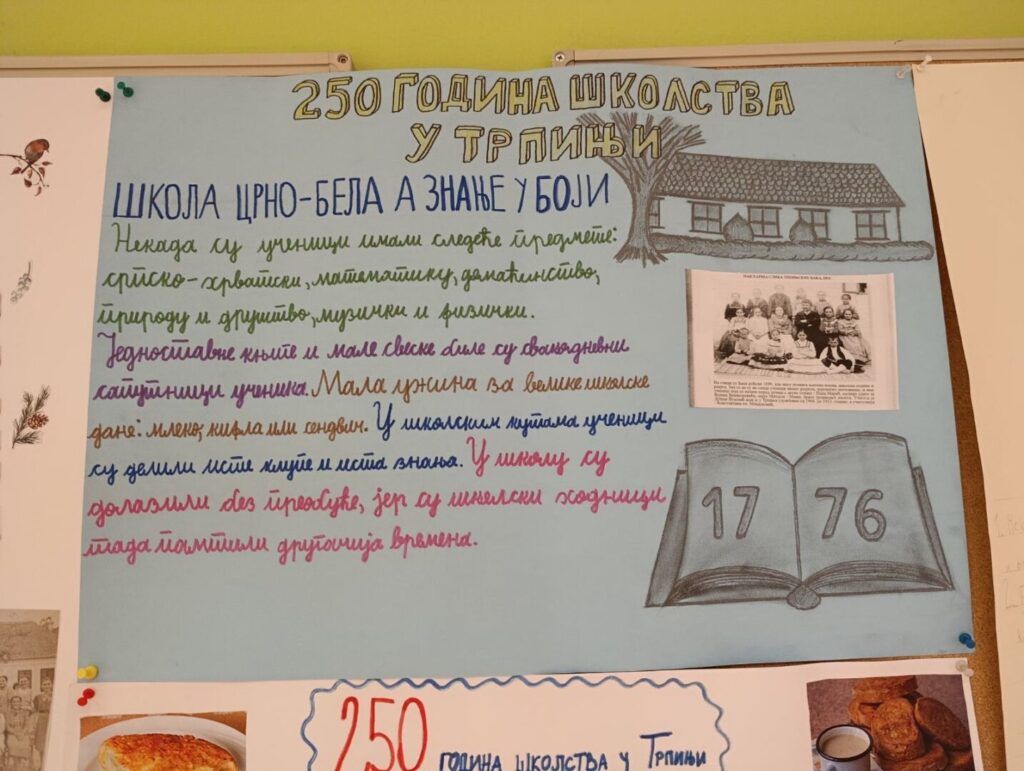 250 ГОДИНА ШКОЛСТВА
У ТРПИЊИ
ШКОЛА ЦРНО-БЕЛА А ЗНАЊЕ У БОЈИ
Некада су ученици имали следеће предмете:
српско-хрватски, математику, домаћинство,
природу и друштво, музички и физички.
Једноставне књиге и мале свеске биле су свакодневни
сапутници ученика. Мала ужина за велике школске
дане: млеко, кифла или сендвич. У школским клупама ученици
су делили исте клупе и иста знања. У школу су
долазили без преобуке, јер су школски ходници
тада памтили другачија времена.
17 76
250 ГОДИНА ШКОЛСТВА У ТРПИЊИ